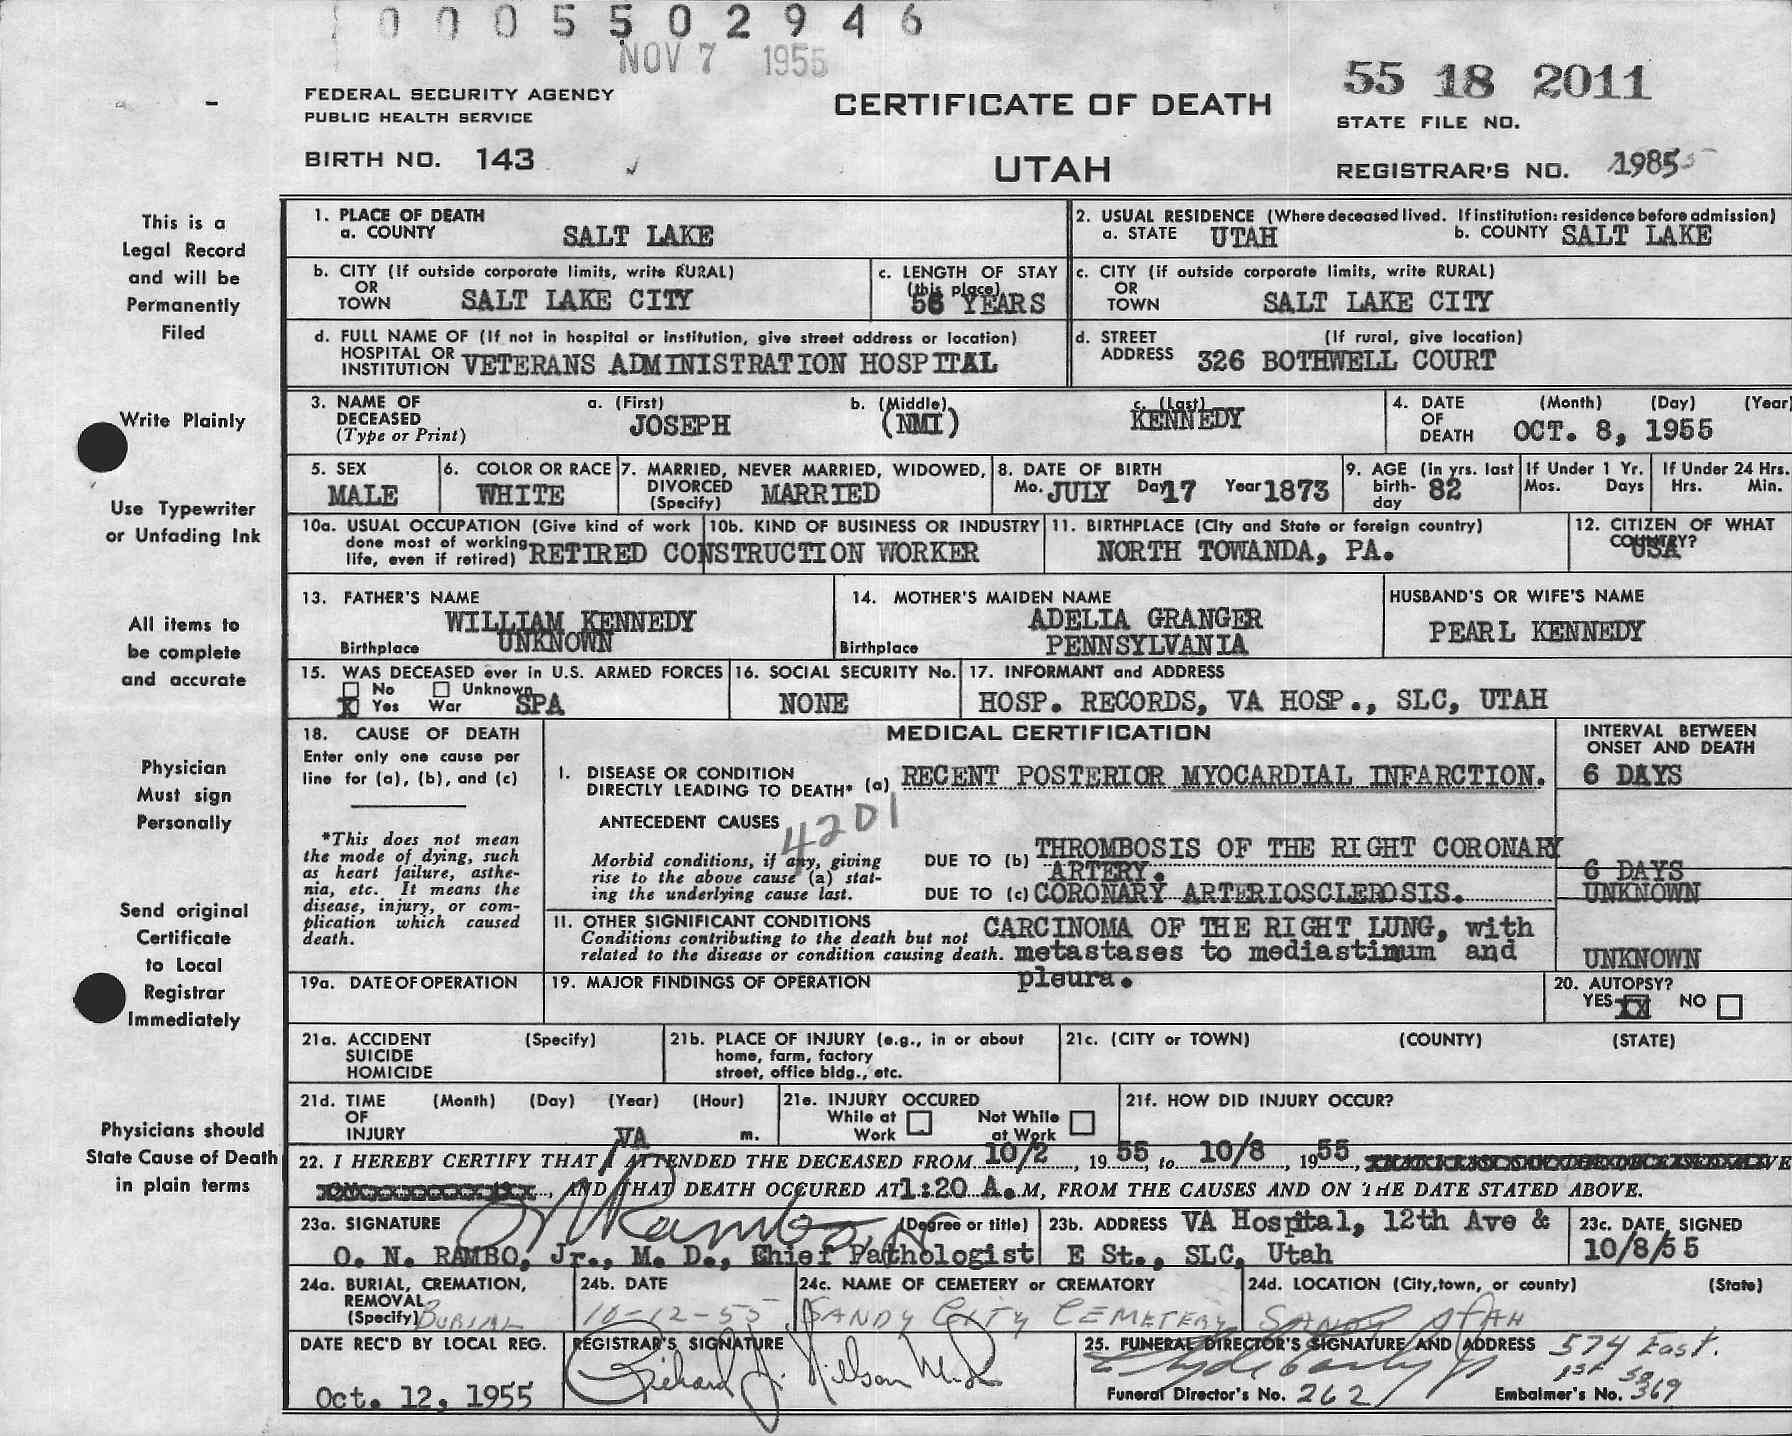 0005502946
NOV 7 1955
55 18 2011
FEDERAL SECURITY AGENCY
PUBLIC HEALTH SERVICE
CERTIFICATE OF DEATH
STATE FILE NO.
BIRTH NO. 143
UTAH
REGISTRAR'S NO. 1985
This is a
Legal Record
and will be
Permanently
Filed
Write Plainly
Use Typewriter
or Unfading Ink
All items to
be complete
and accurate
Physician
Must sign
Personally
Send original
Certificate
to Local
Registrar
Immediately
Physicians should
State Cause of Death
in plain terms
1. PLACE OF DEATH
a. COUNTY SALT LAKE
2. USUAL RESIDENCE (Where deceased lived. If institution: residence before admission)
a. STATE UTAH b. COUNTY SALT LAKE
b. CITY (If outside corporate limits, write RURAL)
OR
TOWN SALT LAKE CITY
c. LENGTH OF STAY
(this place)
56 YEARS
c. CITY (if outside corporate limits, write RURAL)
OR
TOWN SALT LAKE CITY
d. FULL NAME OF (If not in hospital or institution, give street address or location)
HOSPITAL OR
INSTITUTION VETERANS ADMINISTRATION HOSPITAL
d. STREET (If rural, give location)
ADDRESS 326 BOTHWELL COURT
3. NAME OF
DECEASED
(Type or Print)
a. (First)
JOSEPH
b. (Middle)
(NMI)
c. (Last)
KENNEDY
4. DATE (Month) (Day) (Year)
OF
DEATH OCT. 8, 1955
5. SEX
MALE
6. COLOR OR RACE
WHITE
7. MARRIED, NEVER MARRIED, WIDOWED,
DIVORCED
(Specify) MARRIED
8. DATE OF BIRTH
Mo. JULY Day 17 Year 1873
9. AGE (in yrs. last
birth-
day 82
If Under 1 Yr.
Mos. Days
If Under 24 Hrs.
Hrs. Min.
10a. USUAL OCCUPATION (Give kind of work
done most of working
life, even if retired) RETIRED CONSTRUCTION WORKER
10b. KIND OF BUSINESS OR INDUSTRY
11. BIRTHPLACE (City and State or foreign country)
NORTH TOWANDA, PA.
12. CITIZEN OF WHAT
COUNTRY?
USA
13. FATHER'S NAME
WILLIAM KENNEDY
Birthplace UNKNOWN
14. MOTHER'S MAIDEN NAME
ADELIA GRANGER
Birthplace PENNSYLVANIA
HUSBAND'S OR WIFE'S NAME
PEARL KENNEDY
15. WAS DECEASED ever in U.S. ARMED FORCES
No Unknown
X Yes War SPA
16. SOCIAL SECURITY No.
NONE
17. INFORMANT and ADDRESS
HOSP. RECORDS, VA HOSP., SLC, UTAH
18. CAUSE OF DEATH
Enter only one cause per
line for (a), (b), and (c)
*This does not mean
the mode of dying, such
as heart failure, asthe-
nia, etc. It means the
disease, injury, or com-
plication which caused
death.
MEDICAL CERTIFICATION
INTERVAL BETWEEN
ONSET AND DEATH
I. DISEASE OR CONDITION
DIRECTLY LEADING TO DEATH* (a) RECENT POSTERIOR MYOCARDIAL INFARCTION. 6 DAYS
ANTECEDENT CAUSES
4201
Morbid conditions, if any, giving
rise to the above cause (a) stat-
ing the underlying cause last.
DUE TO (b) THROMBOSIS OF THE RIGHT CORONARY
ARTERY. 6 DAYS
DUE TO (c) CORONARY ARTERIOSCLEROSIS. UNKNOWN
II. OTHER SIGNIFICANT CONDITIONS
Conditions contributing to the death but not
related to the disease or condition causing death.
CARCINOMA OF THE RIGHT LUNG, with
metastases to mediastinum and
pleura.
UNKNOWN
19a. DATE OF OPERATION
19. MAJOR FINDINGS OF OPERATION
20. AUTOPSY?
YES XX NO
21a. ACCIDENT (Specify)
SUICIDE
HOMICIDE
21b. PLACE OF INJURY (e.g., in or about
home, farm, factory
street, office bldg., etc.
21c. (CITY or TOWN) (COUNTY) (STATE)
21d. TIME (Month) (Day) (Year) (Hour)
OF
INJURY m.
21e. INJURY OCCURED
While at Work
Not While at Work
21f. HOW DID INJURY OCCUR?
VA
22. I HEREBY CERTIFY THAT I ATTENDED THE DECEASED FROM 10/2, 1955, to 10/8, 1955,
AND THAT DEATH OCCURED AT 1:20 A.M, FROM THE CAUSES AND ON THE DATE STATED ABOVE.
23a. SIGNATURE (Degree or title)
O N Rambo Jr
O. N. RAMBO, Jr., M. D., Chief Pathologist
23b. ADDRESS VA Hospital, 12th Ave &
E St., SLC, Utah
23c. DATE SIGNED
10/8/55
24a. BURIAL, CREMATION,
REMOVAL
(Specify) BURIAL
24b. DATE
10-12-55
24c. NAME OF CEMETERY or CREMATORY
SANDY CITY CEMETERY
24d. LOCATION (City, town, or county) (State)
SANDY UTAH
DATE REC'D BY LOCAL REG.
Oct. 12, 1955
REGISTRAR'S SIGNATURE
Richard J. Nilson M.D.
25. FUNERAL DIRECTOR'S SIGNATURE AND ADDRESS 574 East.
1st So
Funeral Director's No. 262
Embalmer's No. 369